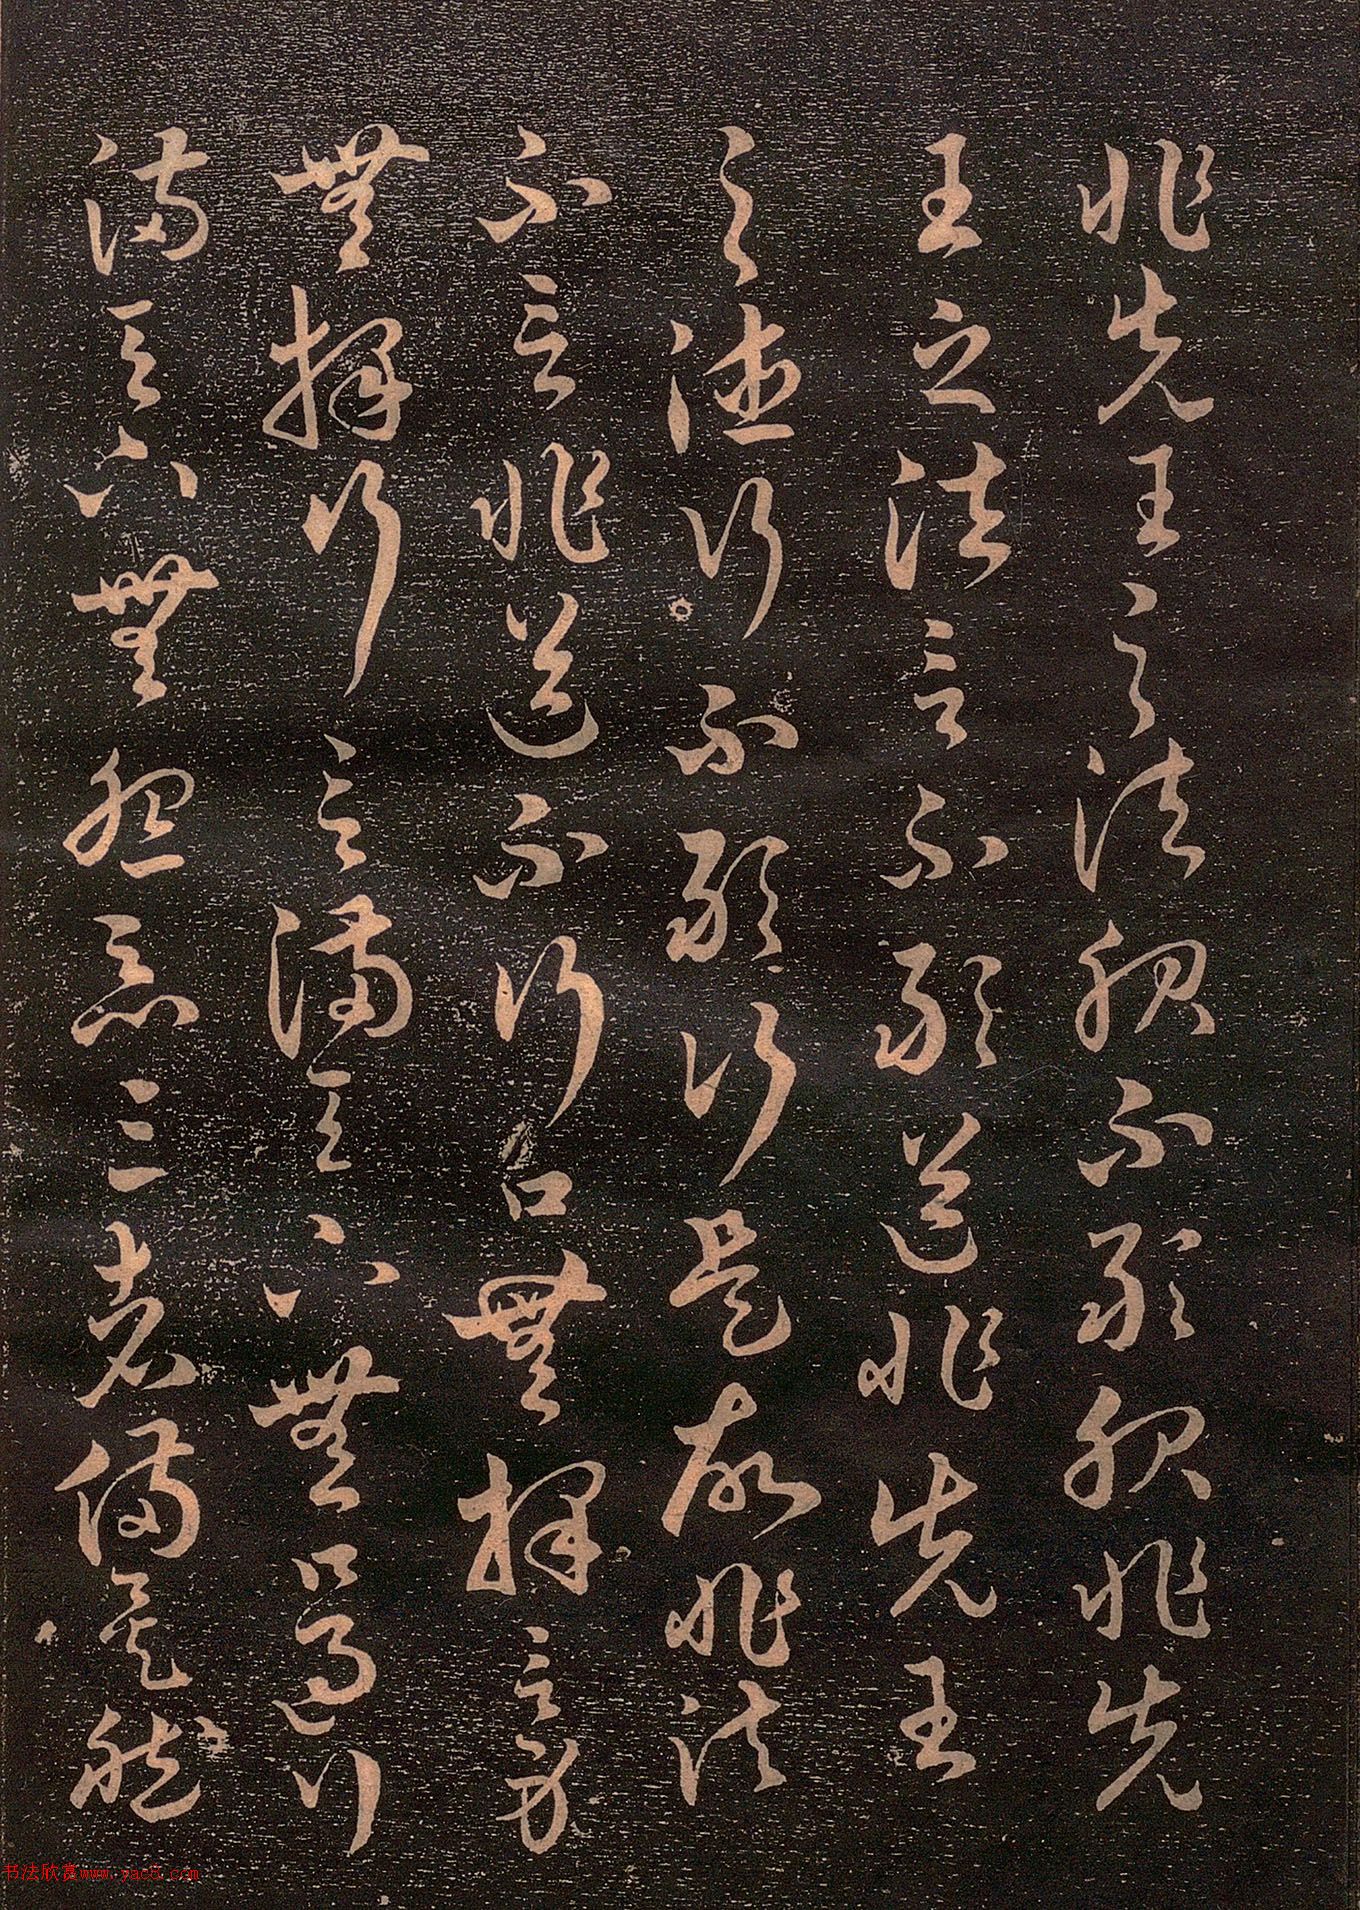 非先王之法服不敢服非先
王之法言不敢道非先王
之德行不敢行是故非法
不言非道不行口無擇言身
無擇行言滿天下無口過行
滿天下無怨惡三者備矣然
书法欣赏www.yac8.com